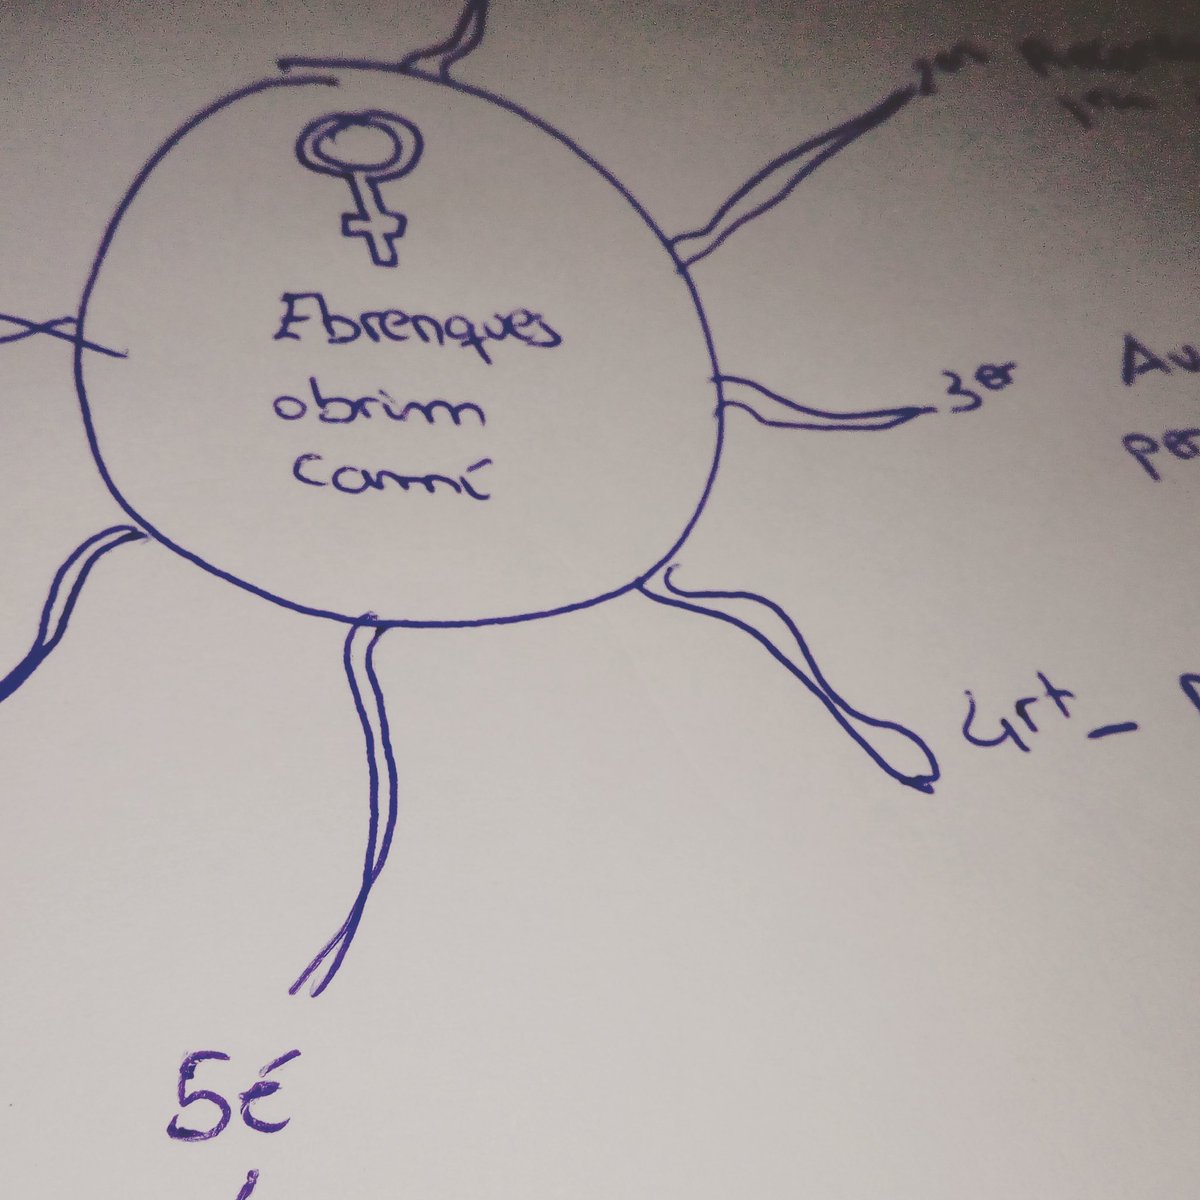 Ebrenques
obrim
camí
3er
Au
per
4rt_
5é